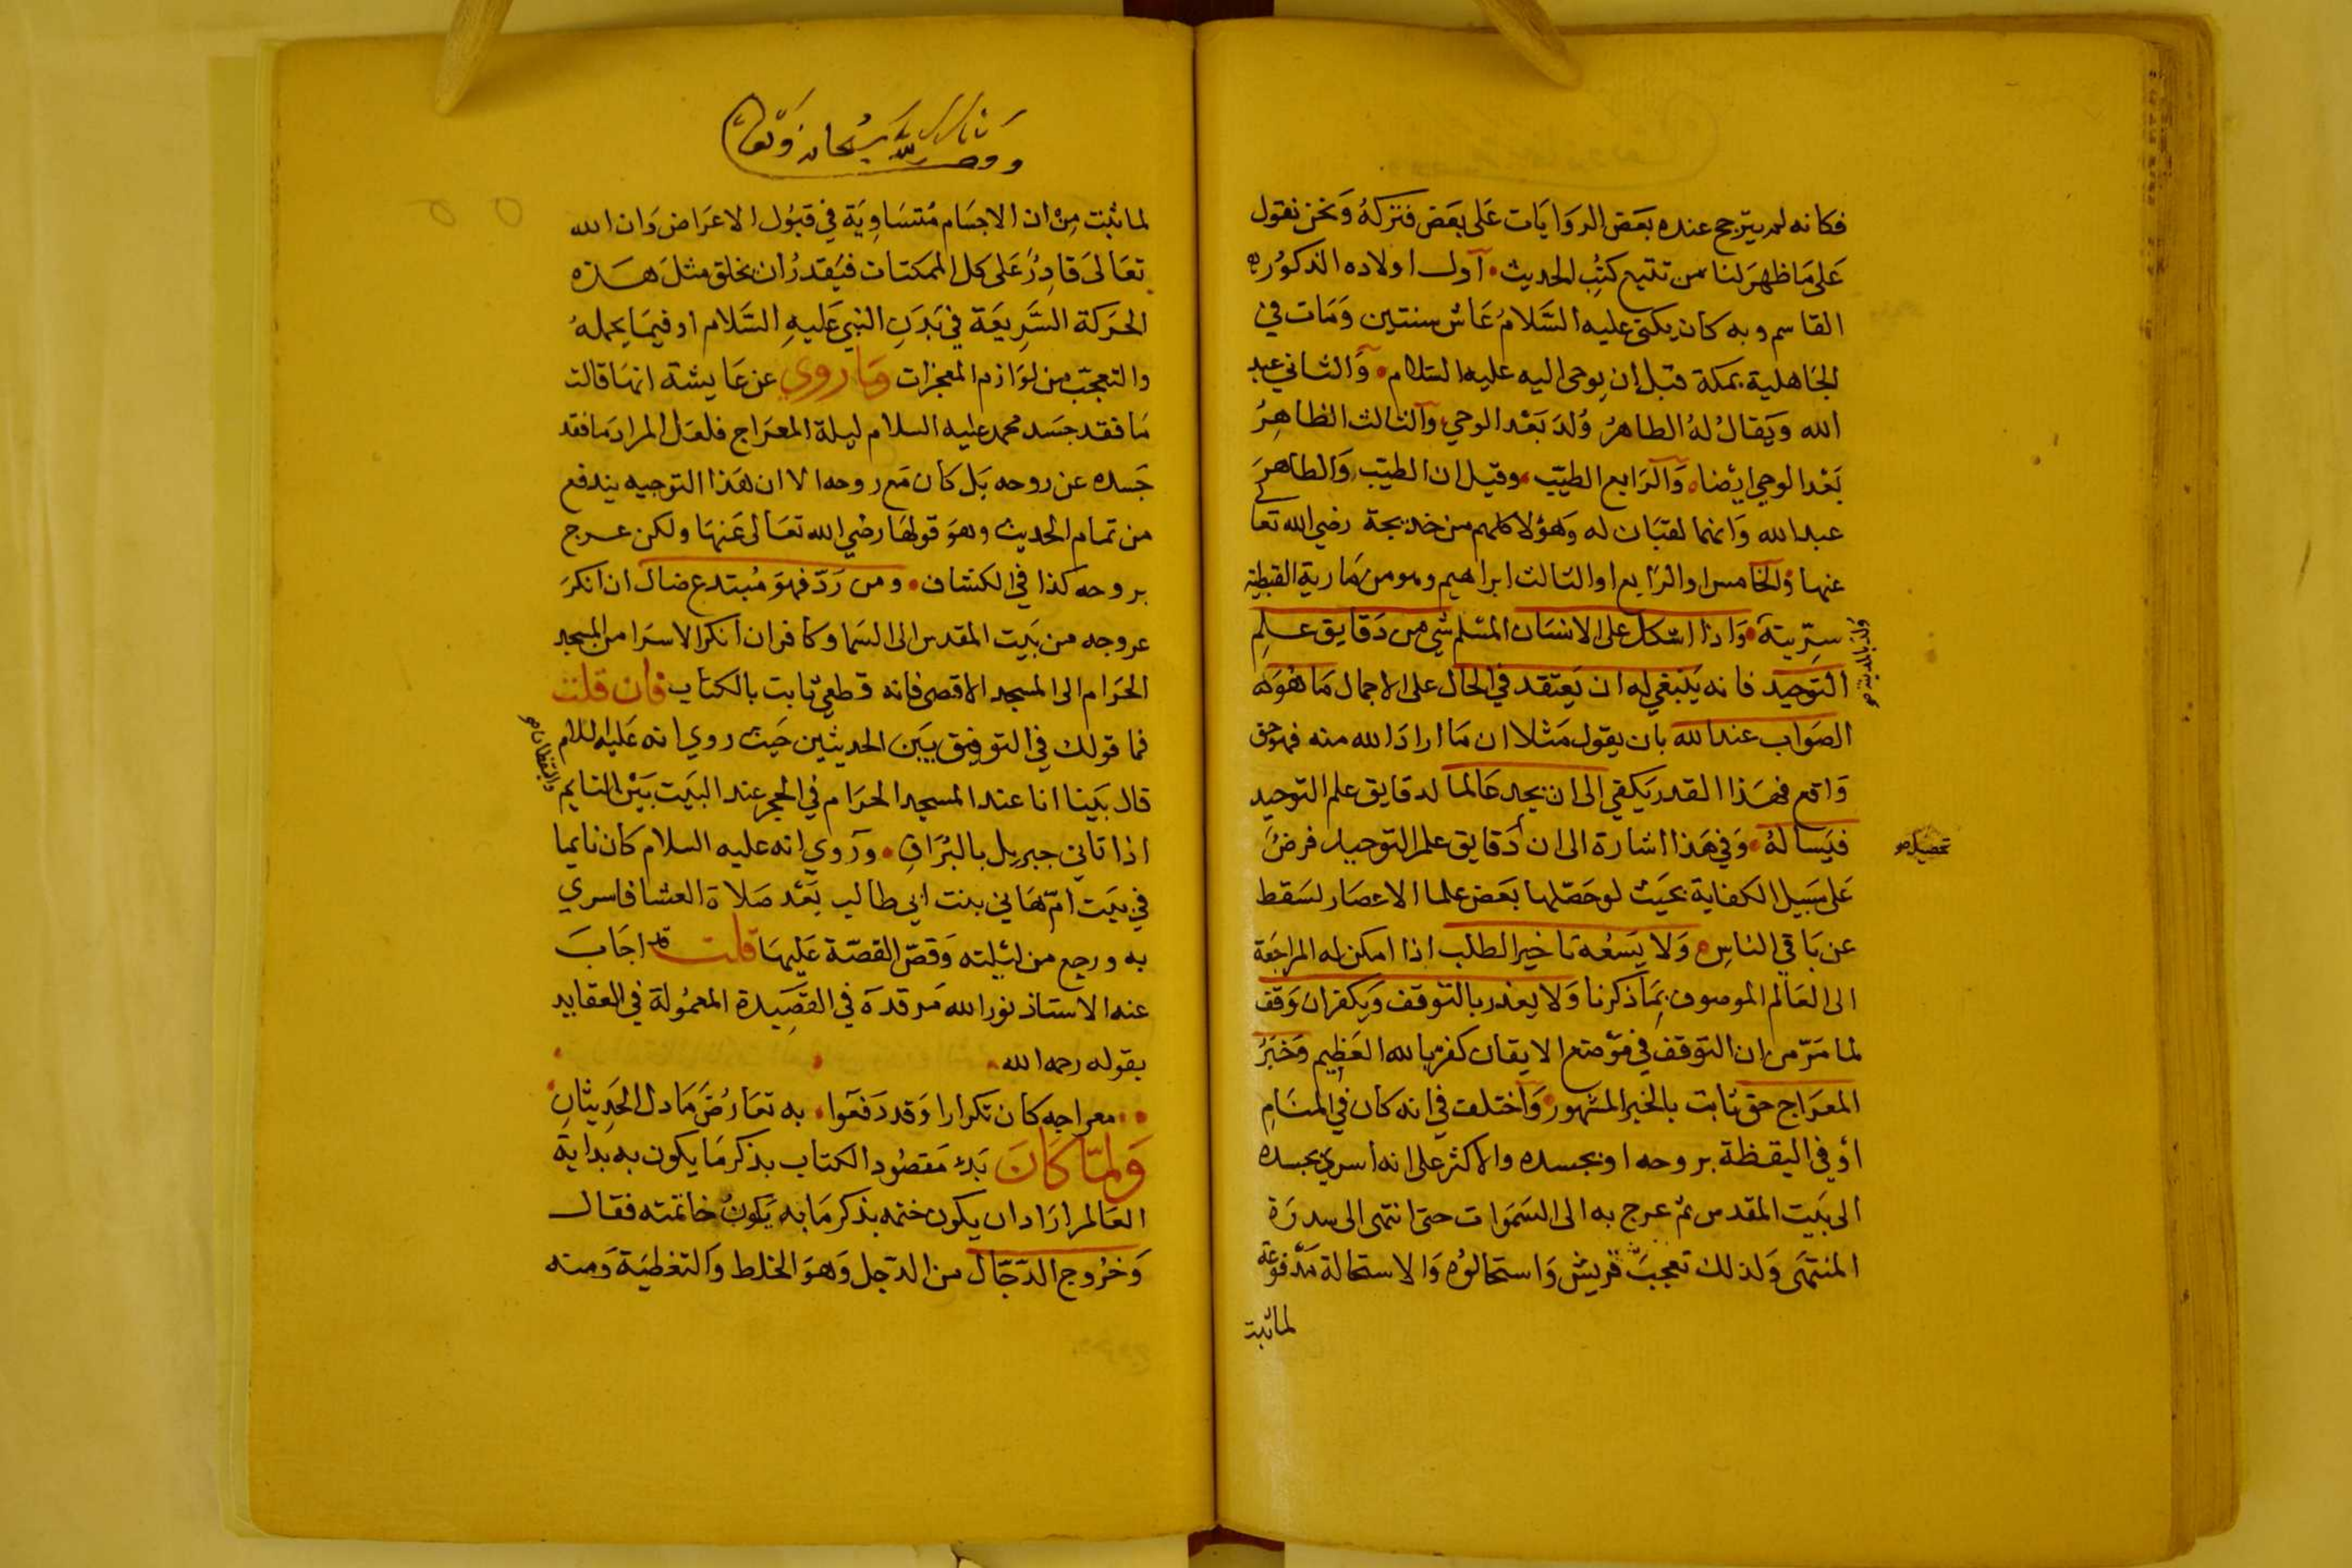 فكانه لم يترجح عنده بعض الروايات على بعض فتركه ونحن نقول
على ما ظهر لنا من تتبع كتب الحديث اول اولاده الذكورة
القاسم وبه كان يكنى عليه السلام عاش سنتين ومات في
الجاهلية بمكة قبل ان يوحى اليه عليه السلام والثاني عبد
الله ويقال له الطاهر ولد بعد الوحي والثالث الظاهر
بعد الوحي ايضا والرابع الطيب وقيل ان الطيب والطاهر
عبد الله وانهما لقبان له وهولا كلهم من خديجة رضي الله تعا
عنها والخامس او الرابع او الثالث ابراهيم وهو من مارية القبطية
سرية واذا اشكل على الانسان المسلم شي من دقايق علم
ولد بالمدينة صح
التوحيد فانه ينبغي له ان يعتقد في الحال على الاجمال ما هو
الصواب عند الله بان يقول مثلا ان ما اراد الله منه فهو حق
واقع فهذا القدر يكفي الى ان يجد عالما لدقايق علم التوحيد
فيساله وفي هذا اشارة الى ان دقايق علم التوحيد فرض
تحصيل صح
على سبيل الكفاية بحيث لو حصلها بعض علما الاعصار لسقط
عن باقي الناس ولا يسعه تاخير الطلب اذا امكن له المراجعة
الى العالم الموصوف بما ذكرنا ولا يعذر بالتوقف ويكفر ان توقف
لما مر من ان التوقف في موضع الايقان كفر بالله العظيم وخبر
المعراج حق ثابت بالخبر المشهور واختلف في انه كان في المنام
او في اليقظة بروحه او بجسده والاكثر على انه اسري بجسده
الى بيت المقدس ثم عرج به الى السموات حتى انتهى الى سدرة
المنتهى ولذلك تعجب قريش واستحالوه والاستحالة مدفوعة
لما ثبت
لما ثبت من ان الاجسام متساوية في قبول الاعراض وان الله
تعالى قادر على كل الممكنات فيقدر ان يخلق مثل هذه
الحركة السريعة في بدن النبي عليه السلام او فيما يحمله
والتعجب من لوازم المعجزات وما روي عن عايشة انها قالت
ما فقد جسد محمد عليه السلام ليلة المعراج فلعل المراد ما فقد
جسده عن روحه بل كان مع روحه الا ان هذا التوجيه يندفع
من تمام الحديث وهو قولها رضي الله تعالى عنها ولكن عرج
بروحه كذا في الكشاف ومن رد فهو مبتدع ضال ان انكر
عروجه من بيت المقدس الى السما وكافر ان انكر الاسرا من المسجد
الحرام الى المسجد الاقصى فانه قطعي ثابت بالكتاب فان قلت
فما قولك في التوفيق بين الحديثين حيث روي انه عليه السلام
قال بينا انا عند المسجد الحرام في الحجر عند البيت بين النايم
واليقظان صح
اذ اتاني جبريل بالبراق وروي انه عليه السلام كان نايما
في بيت ام هاني بنت ابي طالب بعد صلاة العشا فاسري
به ورجع من ليلته وقص القصة عليها قلت قد اجاب
عنه الاستاذ نور الله مرقده في القصيدة المعمولة في العقايد
بقوله رحمه الله
معراجه كان تكرارا وقد دفعوا به تعارض ما دل الحديثان
ولما كان بدء مقصود الكتاب بذكر ما يكون به بداية
العالم اراد ان يكون ختمه بذكر ما به يكون خاتمته فقال
وخروج الدجال من الدجل وهو الخلط والتغطية ومنه